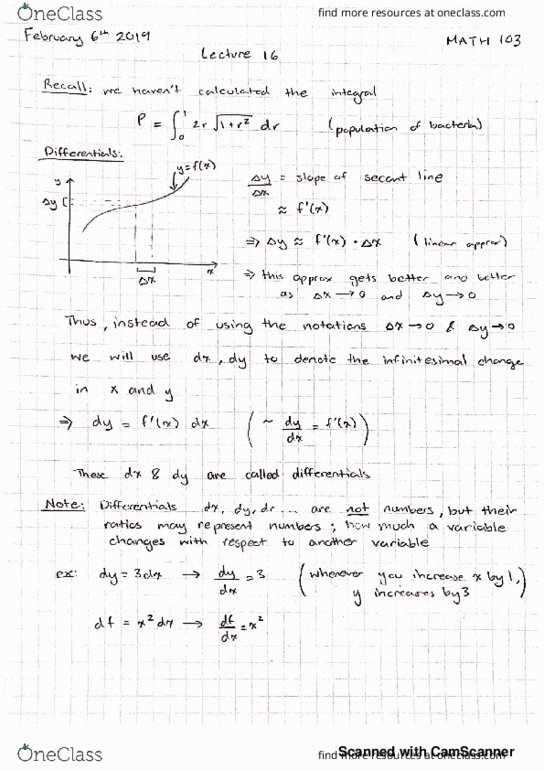 OneClass find more resources at oneclass.com
February 6th 2019 MATH 103
Lecture 16
Recall: we haven't calculated the integral
P = ∫₀¹ 2r √(1+r²) dr (population of bacteria)
Differentials:
y y=f(x)
Δy
x
Δx
Δy/Δx = slope of secant line
≈ f'(x)
⇒ Δy ≈ f'(x) · Δx (linear approx)
⇒ this approx gets better and better
as Δx → 0 and Δy → 0
Thus, instead of using the notations Δx → 0 & Δy → 0
we will use dx, dy to denote the infinitesimal change
in x and y
⇒ dy = f'(x) dx ( ~ dy/dx = f'(x) )
These dx & dy are called differentials
Note: Differentials dx, dy, dr ... are not numbers, but their
ratios may represent numbers; how much a variable
changes with respect to another variable
ex: dy = 3dx → dy/dx = 3 (whenever you increase x by 1,
y increases by 3)
df = x² dx → df/dx = x²
OneClass find more resources at oneclass.com
Scanned with CamScanner